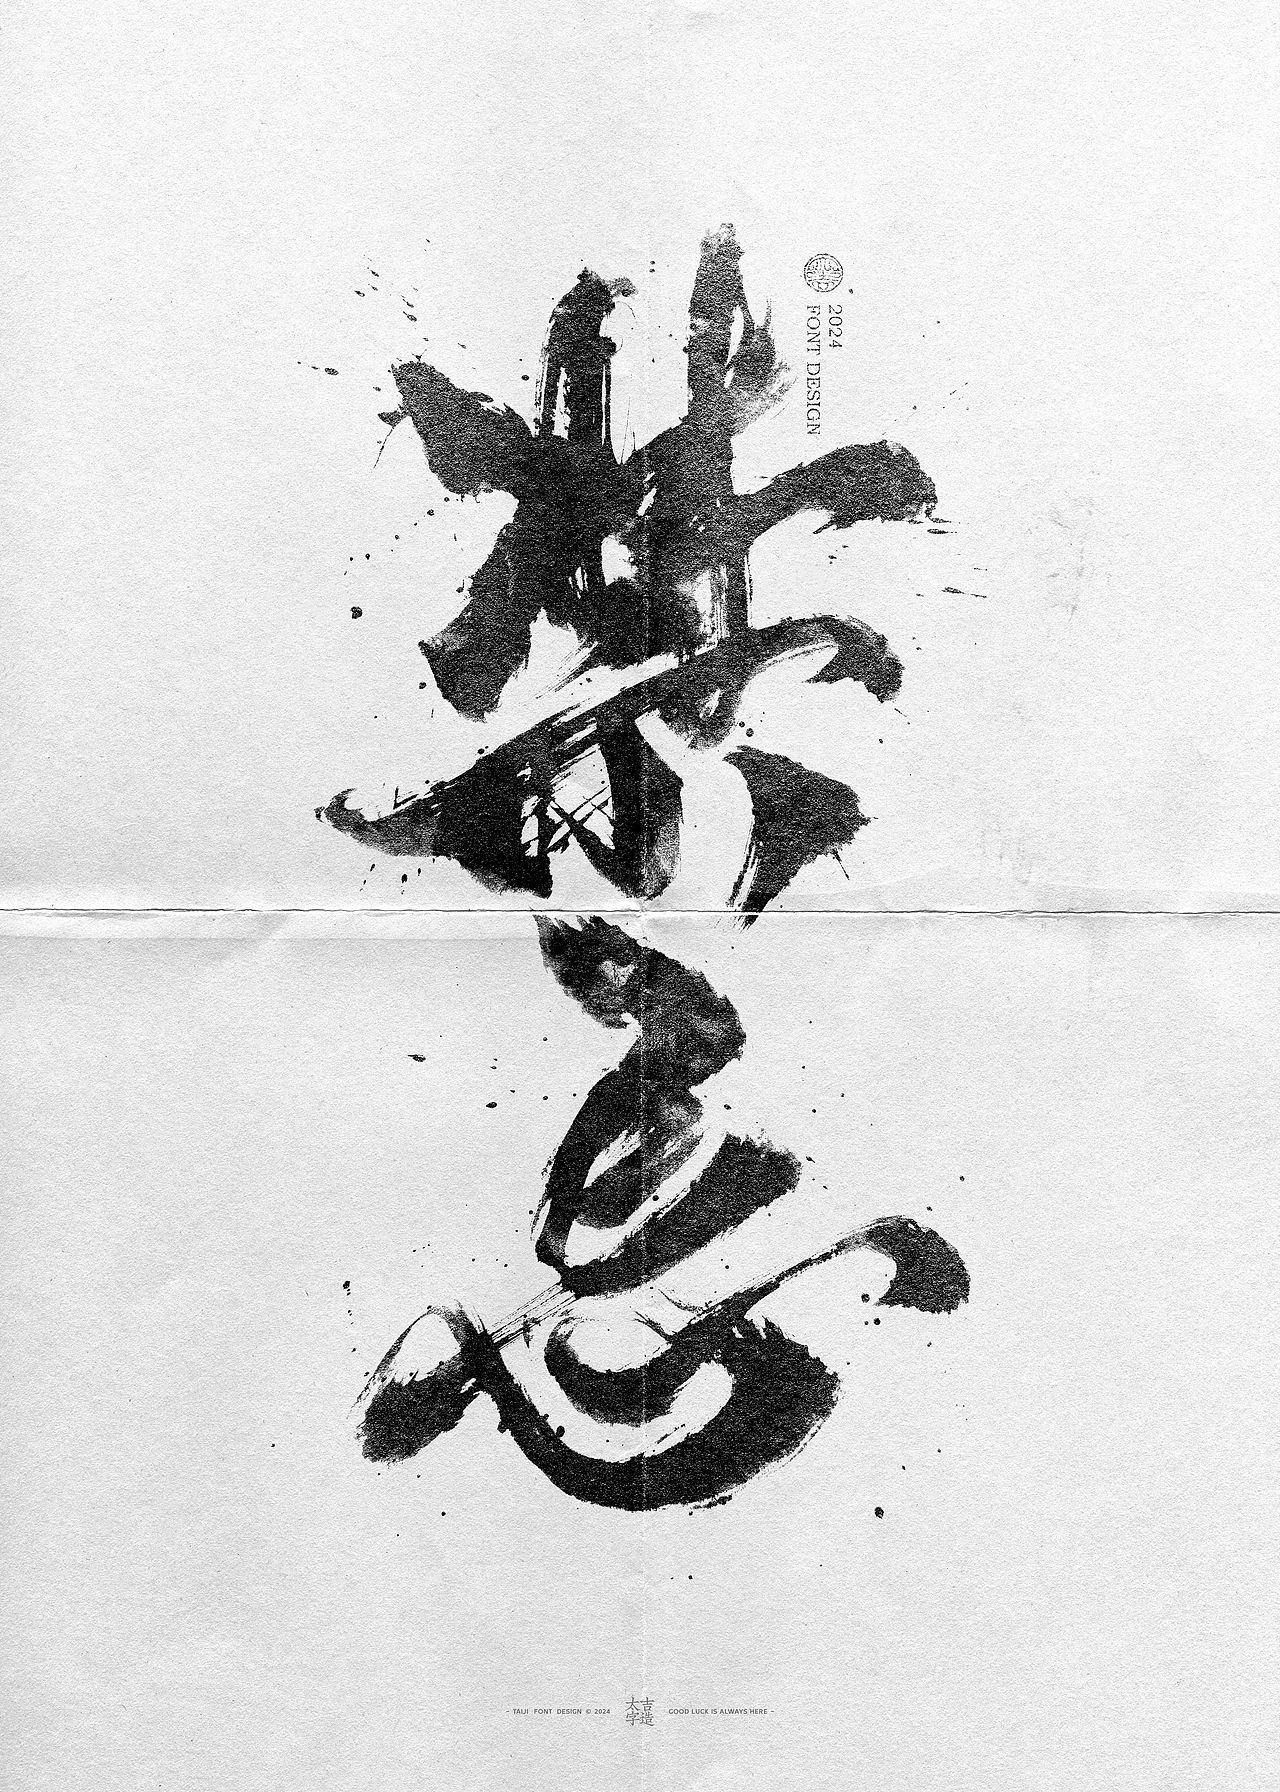 禁忌
2024
FONT DESIGN
– TAIJI FONT DESIGN © 2024
太吉造字
GOOD LUCK IS ALWAYS HERE –